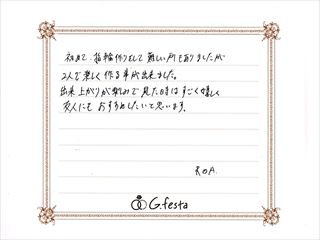 初めて、指輪作りをして難しい所もありましたが
2人で楽しく作る事が出来ました。
出来上がりが楽しみで見た時はすごく嬉しく
友人にもおすすめしたいと思います。
R.A.
G.festa